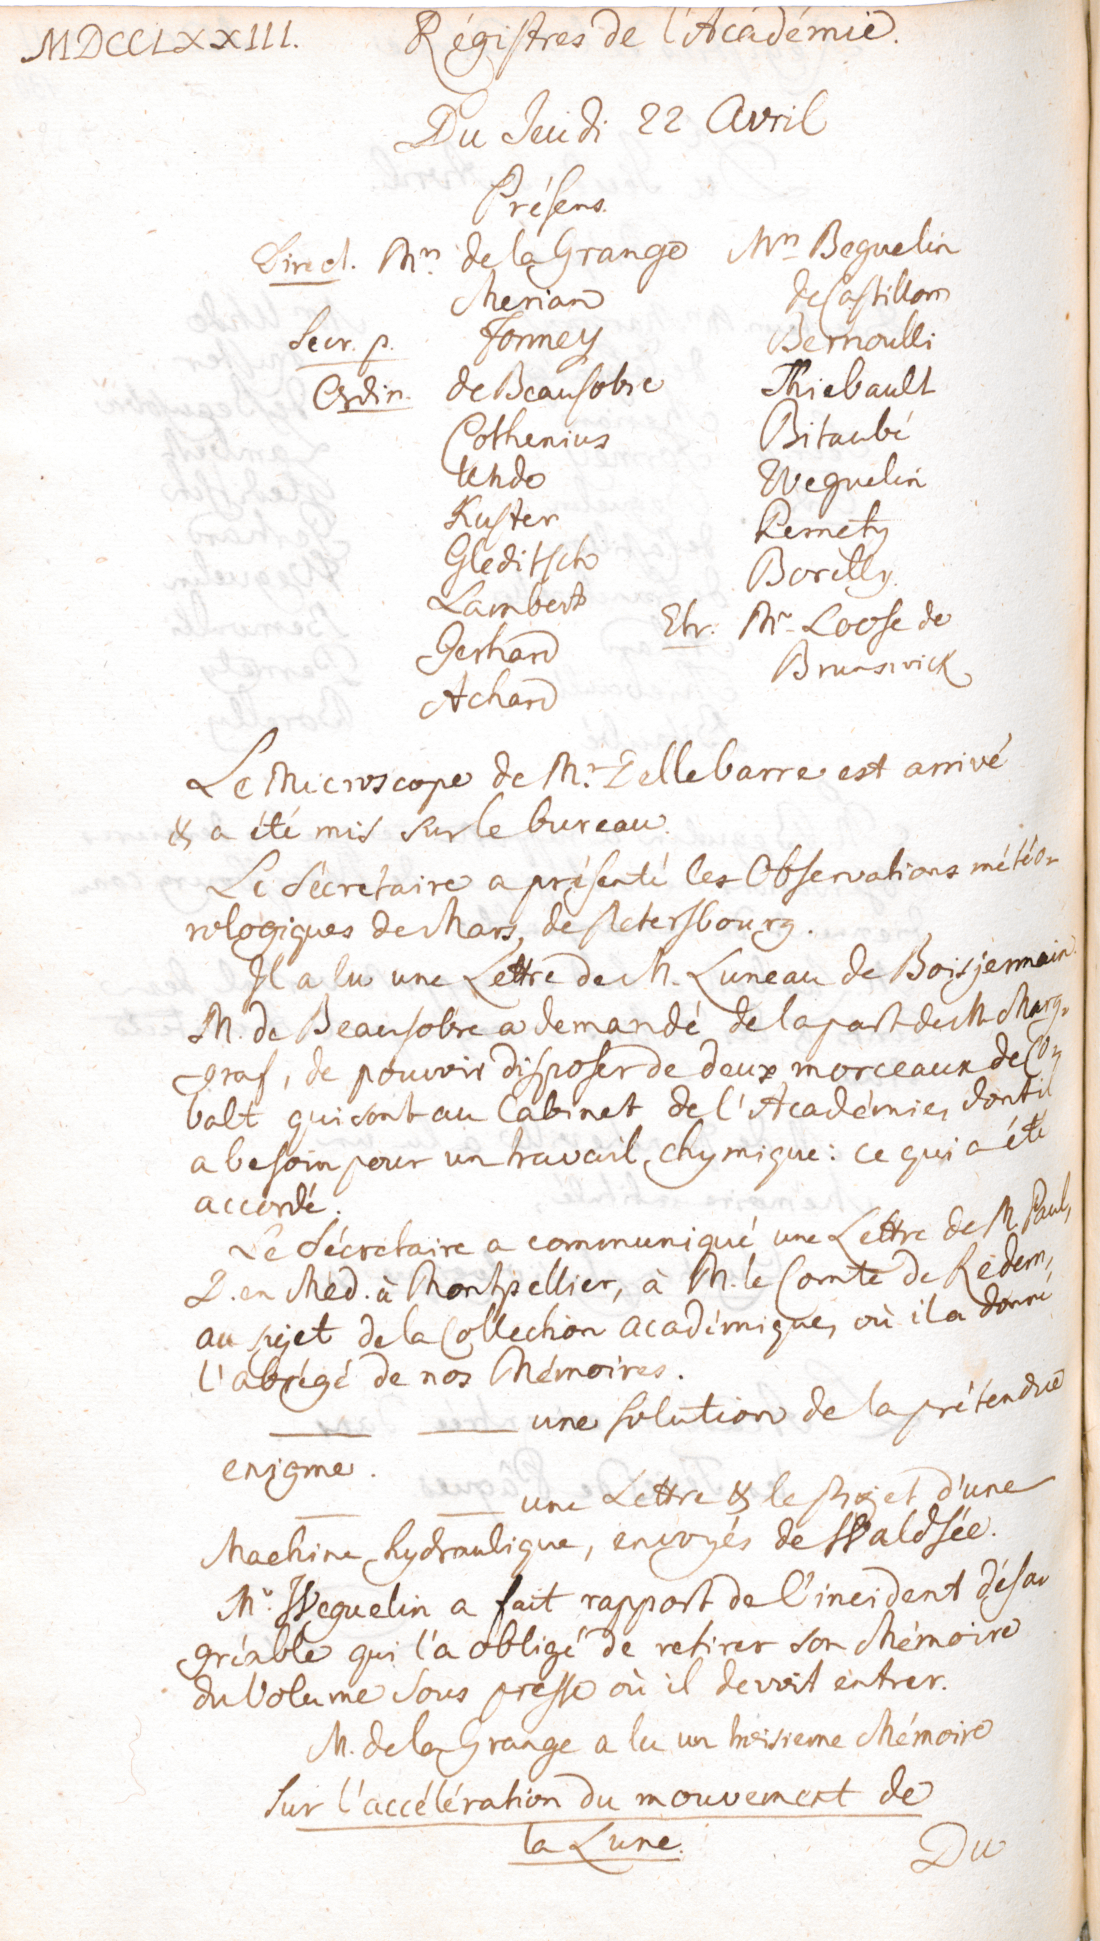 MDCCLXXIII. Régistres de l'Académie.
Du Jeudi 22 Avril
Présens.
Direct. Mrs. de la Grange Mrs. Beguelin
Merian de Castillon
Secr. p. Formey Bernoulli
Ordin. de Beausobre Thiebault
Cothenius Bitaubé
Uhdo Weguelin
Kuster Pernety
Gleditsch Borelly.
Lambert Etr. Mr. Loose de
Gerhard Brunswick
Achard
Le Microscope de Mr. Dellebarre est arrivé
& a été mis sur le bureau.
Le Sécretaire a présenté les Observations météo-
rologiques de Mars, de Petersbourg.
Il a lu une Lettre de M. Luneau de Boisjermain.
M. de Beausobre a demandé de la part de M. Marg-
graf, de pouvoir disposer de deux morceaux de Co-
balt qui sont au Cabinet de l'Académie, dont il
a besoin pour un travail chymique: ce qui a été
accordé.
Le Sécretaire a communiqué une Lettre de M. Paul,
D. en Med. à Montpellier, à M. le Comte de Redern,
au sujet de la Collection académique, où il a donné
l'abrégé de nos Mémoires.
—— —— une solution de la prétendue
enigme.
—— —— une Lettre & le Projet d'une
Machine hydraulique, envoyés de Waldsée.
Mr. Weguelin a fait rapport de l'incident désa-
gréable qui l'a obligé de retirer son Mémoire
du Volume sous presse où il devoit entrer.
M. de la Grange a lu un troisieme Mémoire
sur l'accélération du mouvement de
la Lune.
Du